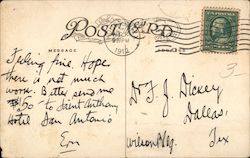 POST CARD
MESSAGE
1912
Feeling fine. Hope
there is not much
work. Better send me
$50 to Saint Anthony
Hotel San Antonio
Dr F. J. Dickey
Dallas,
Wilson Bldg. Tex
3